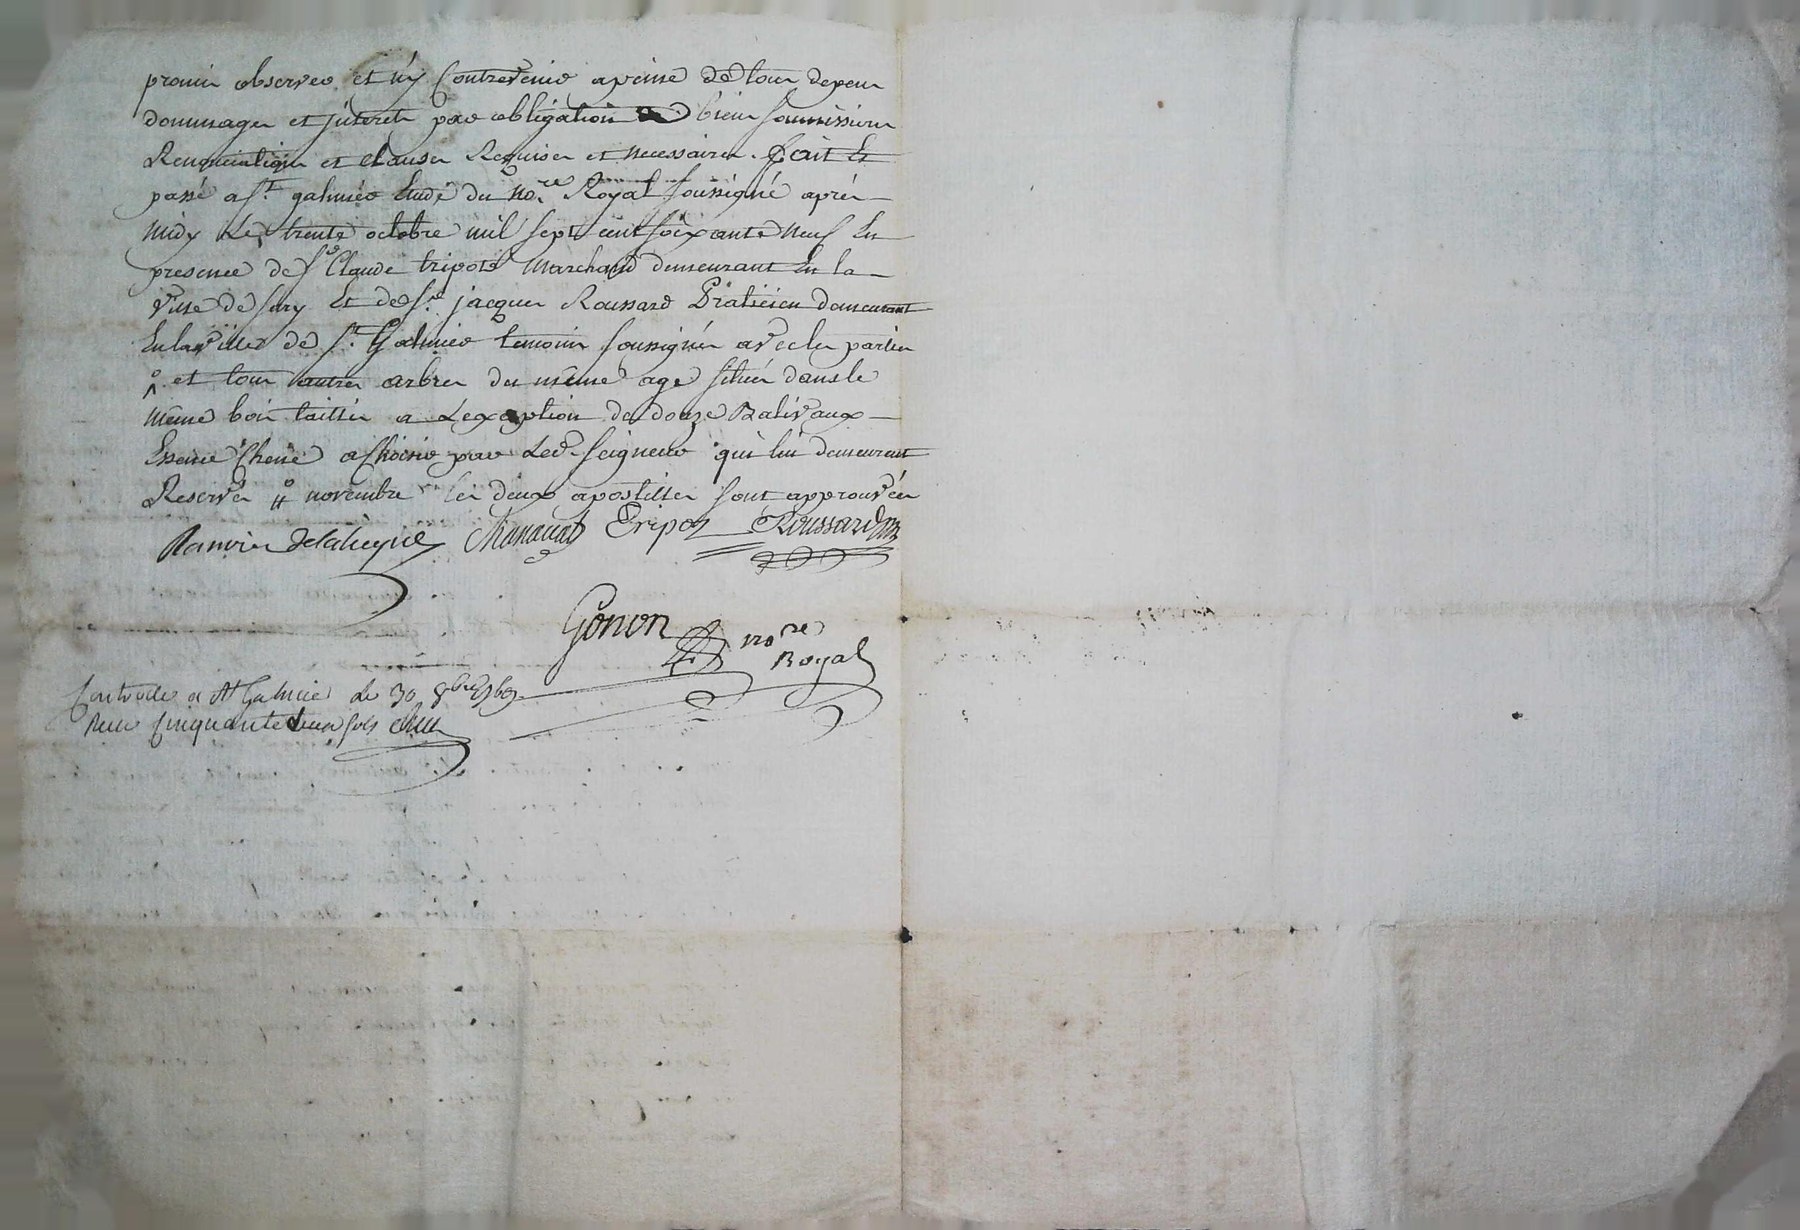 promis observer et n'y Contrevenir a peine de tous depens
dommages et jnterets par obligation de biens soumissions
Renonciation et clauses Requises et necessaires. fait et
passé a St. galmier Etude du nore. Royal soussigné après
midy Le trente octobre mil sept cent soixante neuf En
presence de Sr Claude tripoté Marchand demeurant En la
ville de sury Et de Sr. jacques Roussard Praticien demeurant
En la ville de St. Galmier temoins soussignés avec les parties
o et tous autres arbres du même age situés dans le
même bois taillis a Lexception de douze Balivaux
Essence Chene a Choisir par Led. Seigneur qui lui demeurent
Reservés # novembre les deux apostilles sont approuvées
Tripot Roussard
Gonon nore
Royal
Controllé a St Galmier Le 30 8bre 1769
Reçu Cinquante deux sols